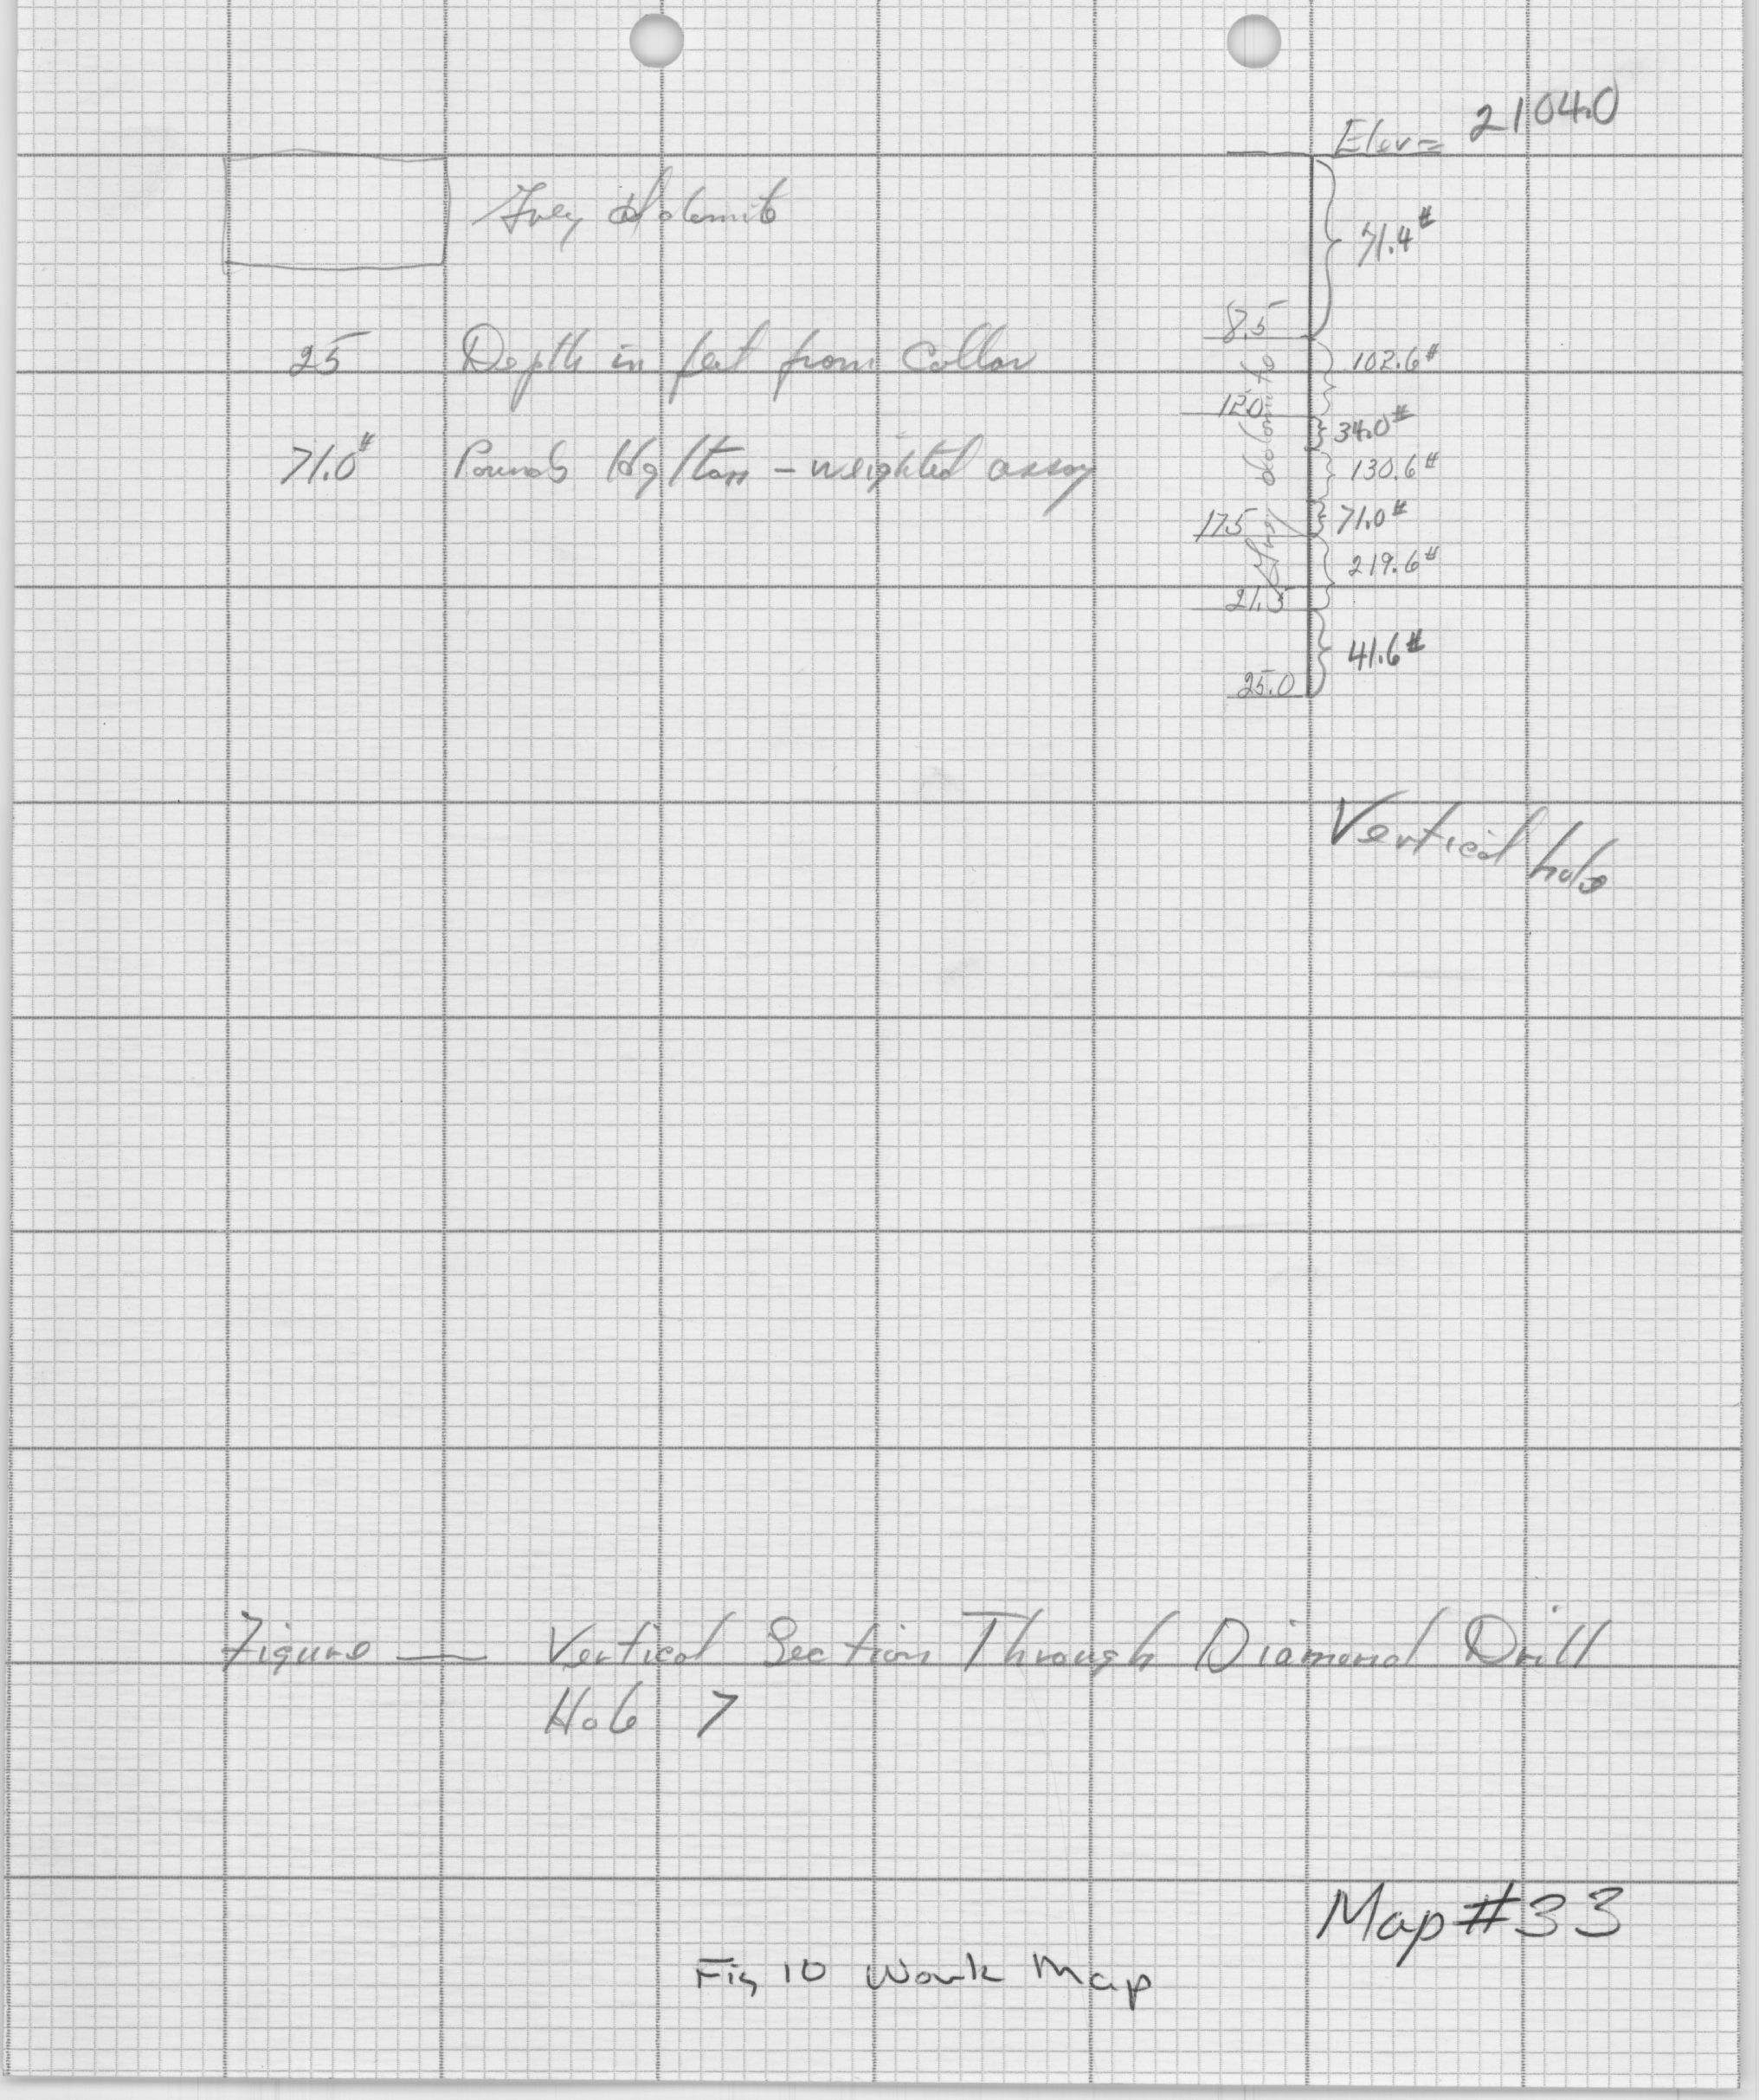 Elev = 2104.0
Grey dolomite
71.4#
8.5
25 Depth in feet from Collar
102.6#
12.0
34.0#
71.0# Pounds Hg/ton - weighted assay
130.6#
Grey dolomite
17.5
71.0#
219.6#
21.5
41.6#
25.0
Vertical hole
Figure — Vertical Section Through Diamond Drill
Hole 7
Map #33
Fig 10 Work Map